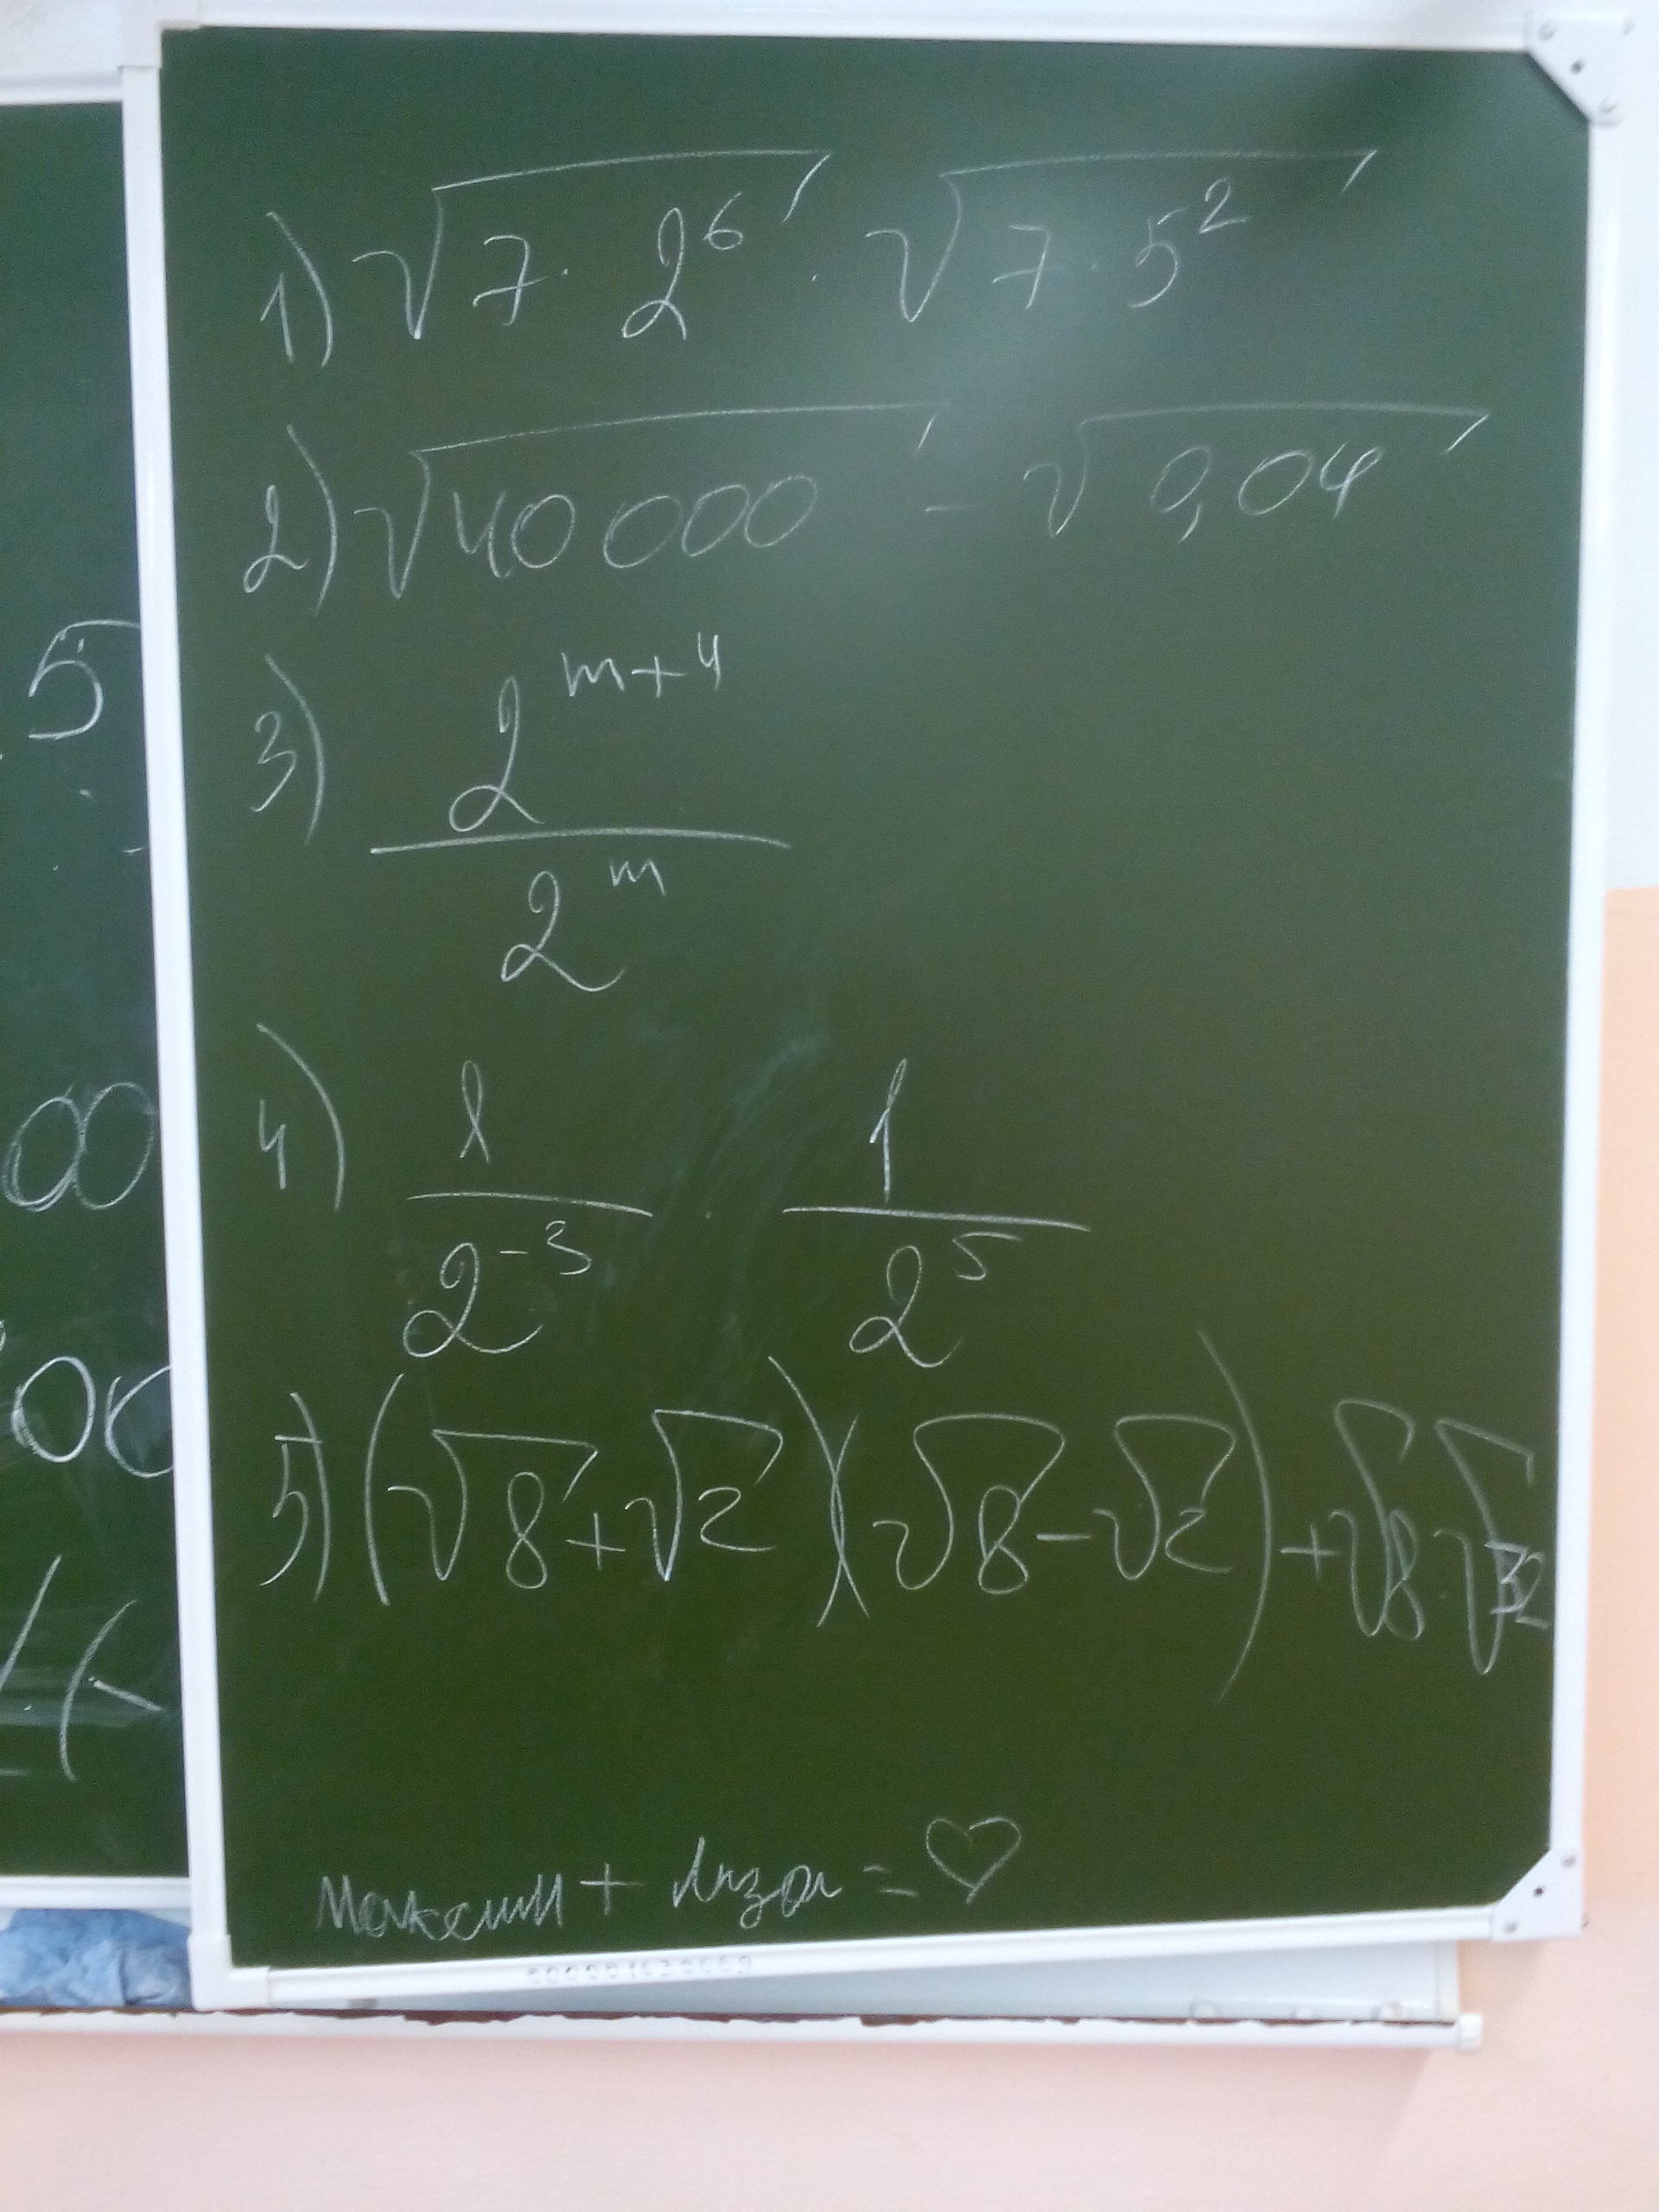 1) √7·2⁶ · √7·5²
2) √40000 - √0,04
3) 2^(m+4)
2^m
4) 1/2⁻³ · 1/2⁵
5) (√8+√2)(√8-√2)+√8·√32
Максим + Лиза = ♡
5
00
00